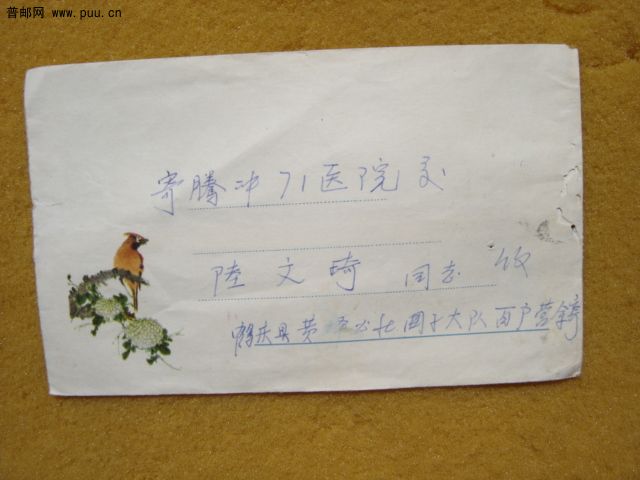 普邮网 www.puu.cn
寄腾冲71医院交
陸文琦 同志 收
鹤庆县黄坪公社 大队百户营